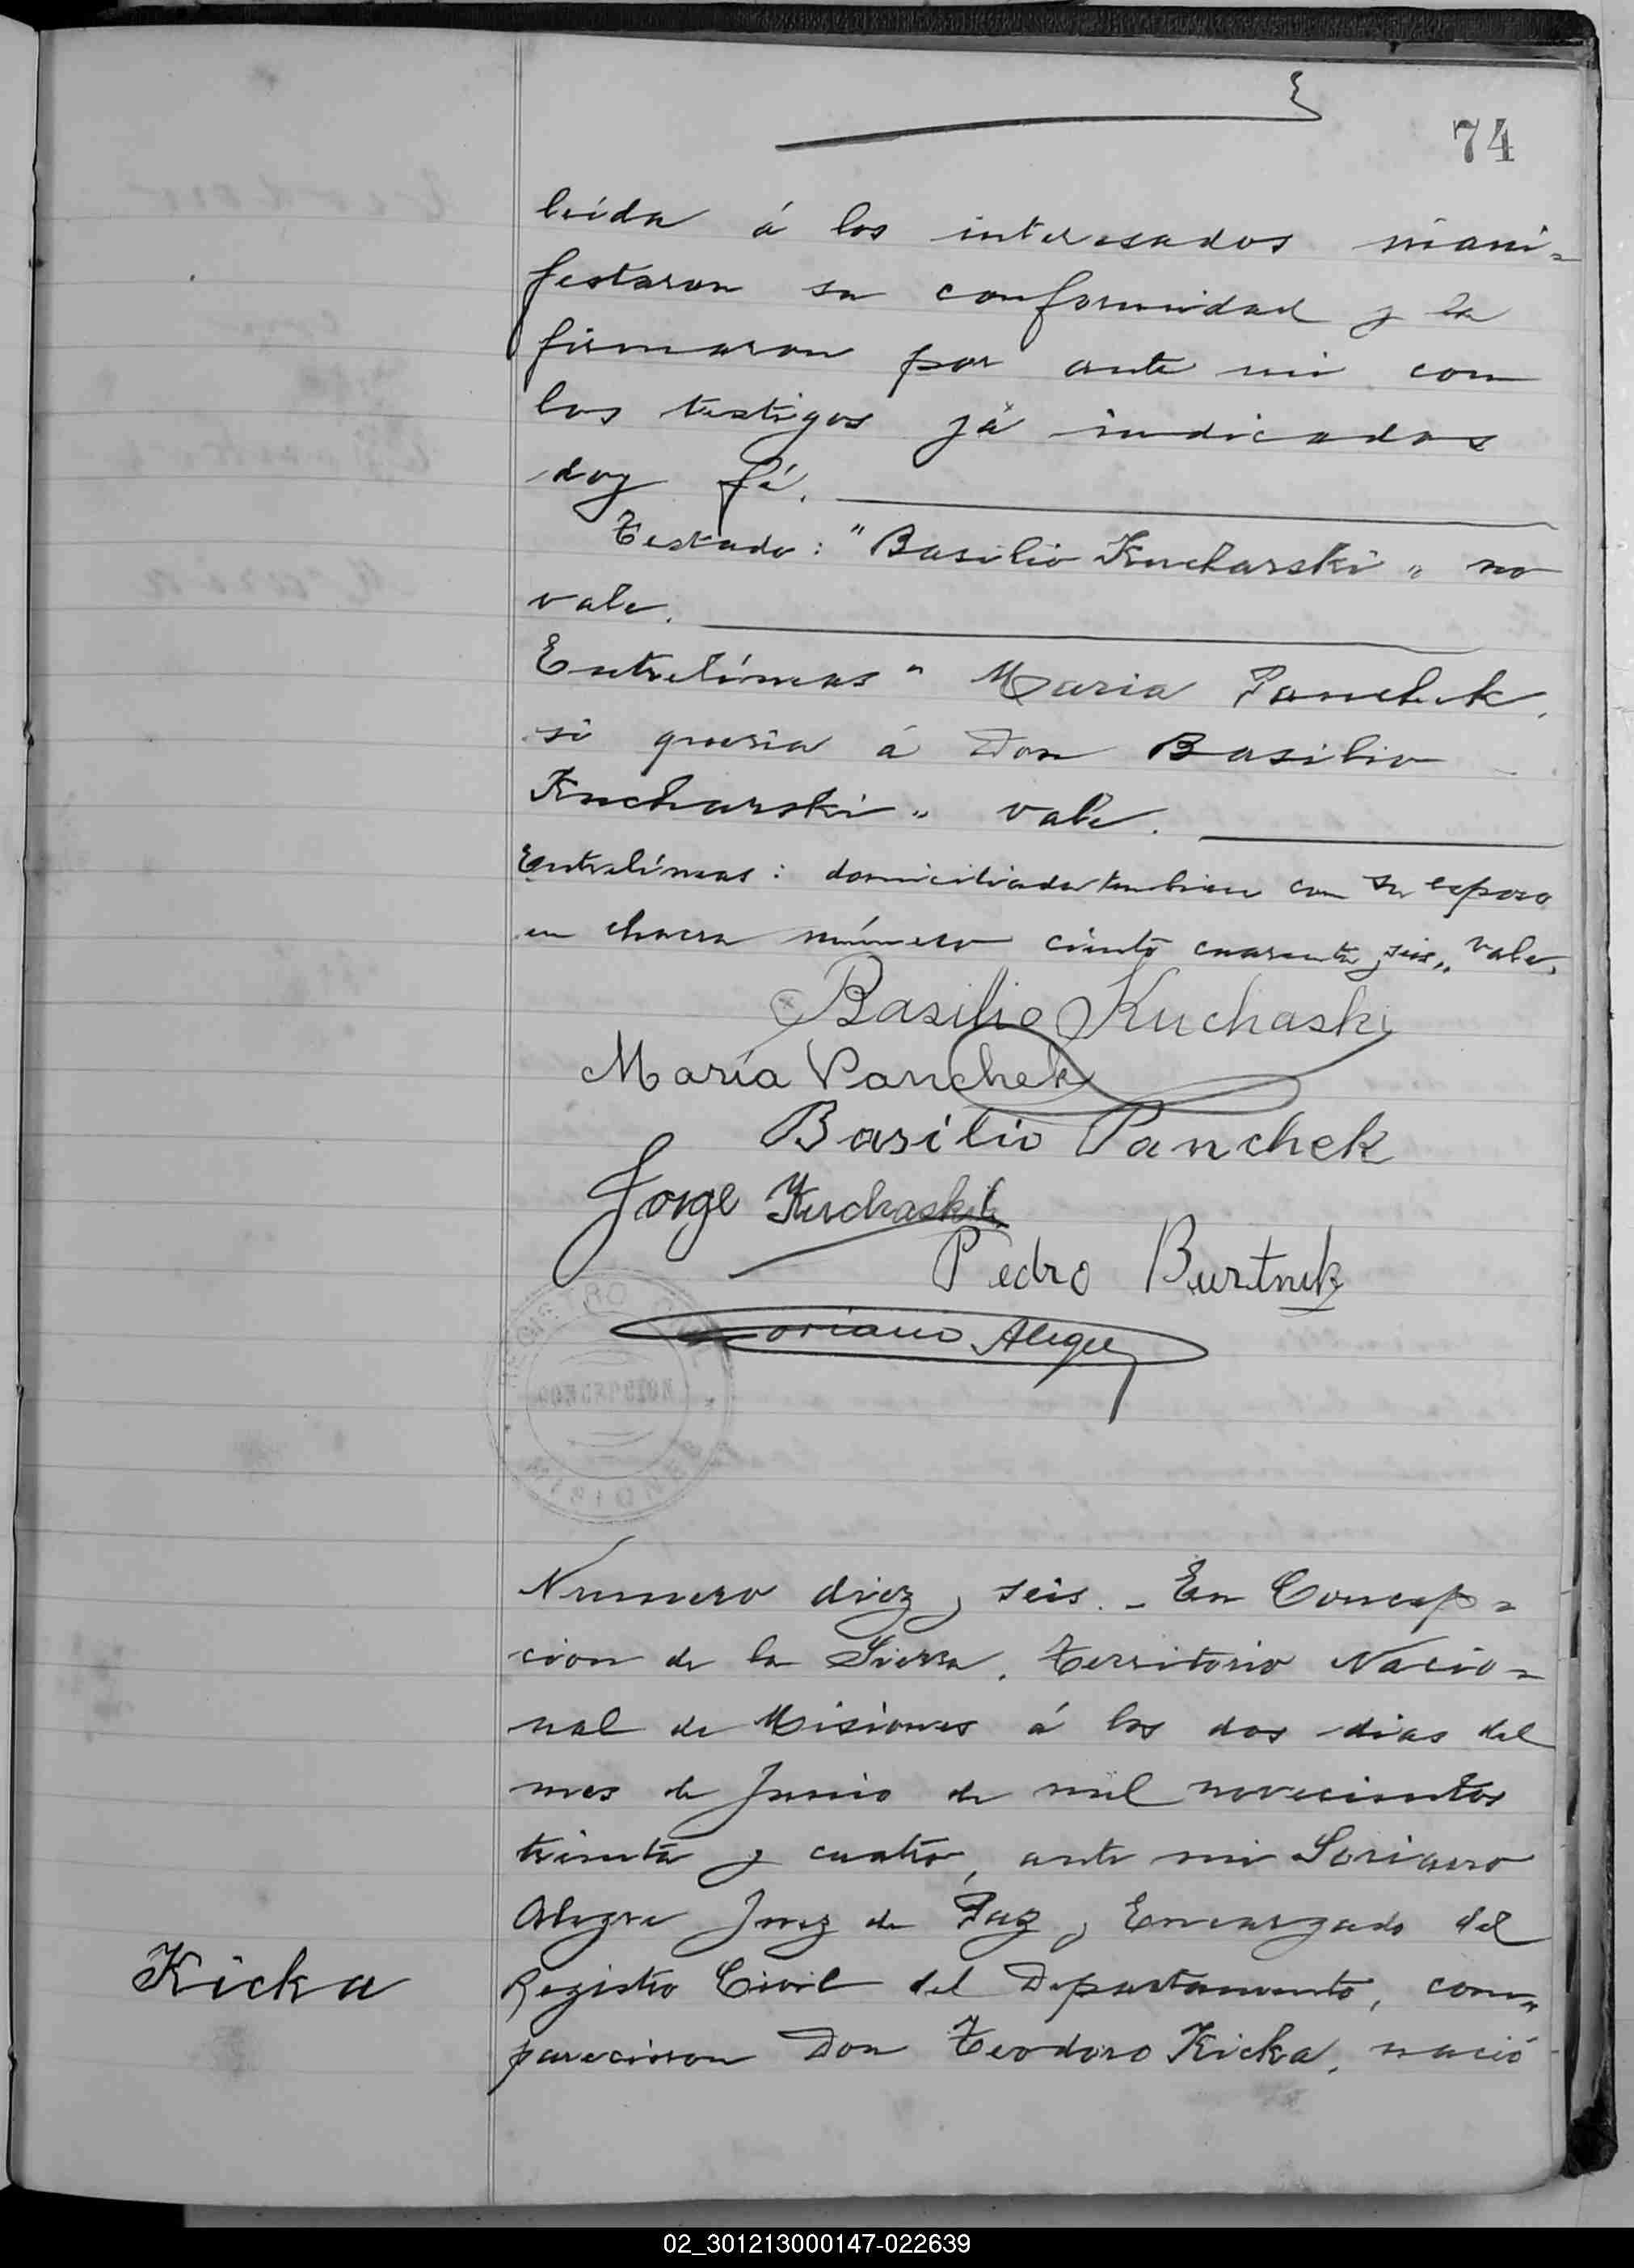 74
leida á los interesados mani=
festaron su conformidad y la
firmaron por ante mi con
los testigos yá indicados
doy fé.
Testado: "Basilio Kucharski" no
vale.
Entrelíneas "Maria Panchek,
si queria á Don Basilio
Kucharski" vale.
Entrelíneas: domiciliada tambien con su esposo
en chacra número ciento cuarenta y seis" vale.
Basilio Kuchaski
María Panchek
Basilio Panchek
Jorge Kuchaski
Pedro Burtnik
Soriano Alegre
REGISTRO CIVIL
CONCEPCION
MISIONES
Numero diez y seis. - En Concep=
cion de la Sierra, Territorio Nacio=
nal de Misiones á los dos dias del
mes de Junio de mil novecientos
treinta y cuatro, ante mi Soriano
Alegre Juez de Paz y Encargado del
Registro Civil del Departamento, com=
Kicka
parecieron Don Teodoro Kicka, nació
02_301213000147-022639